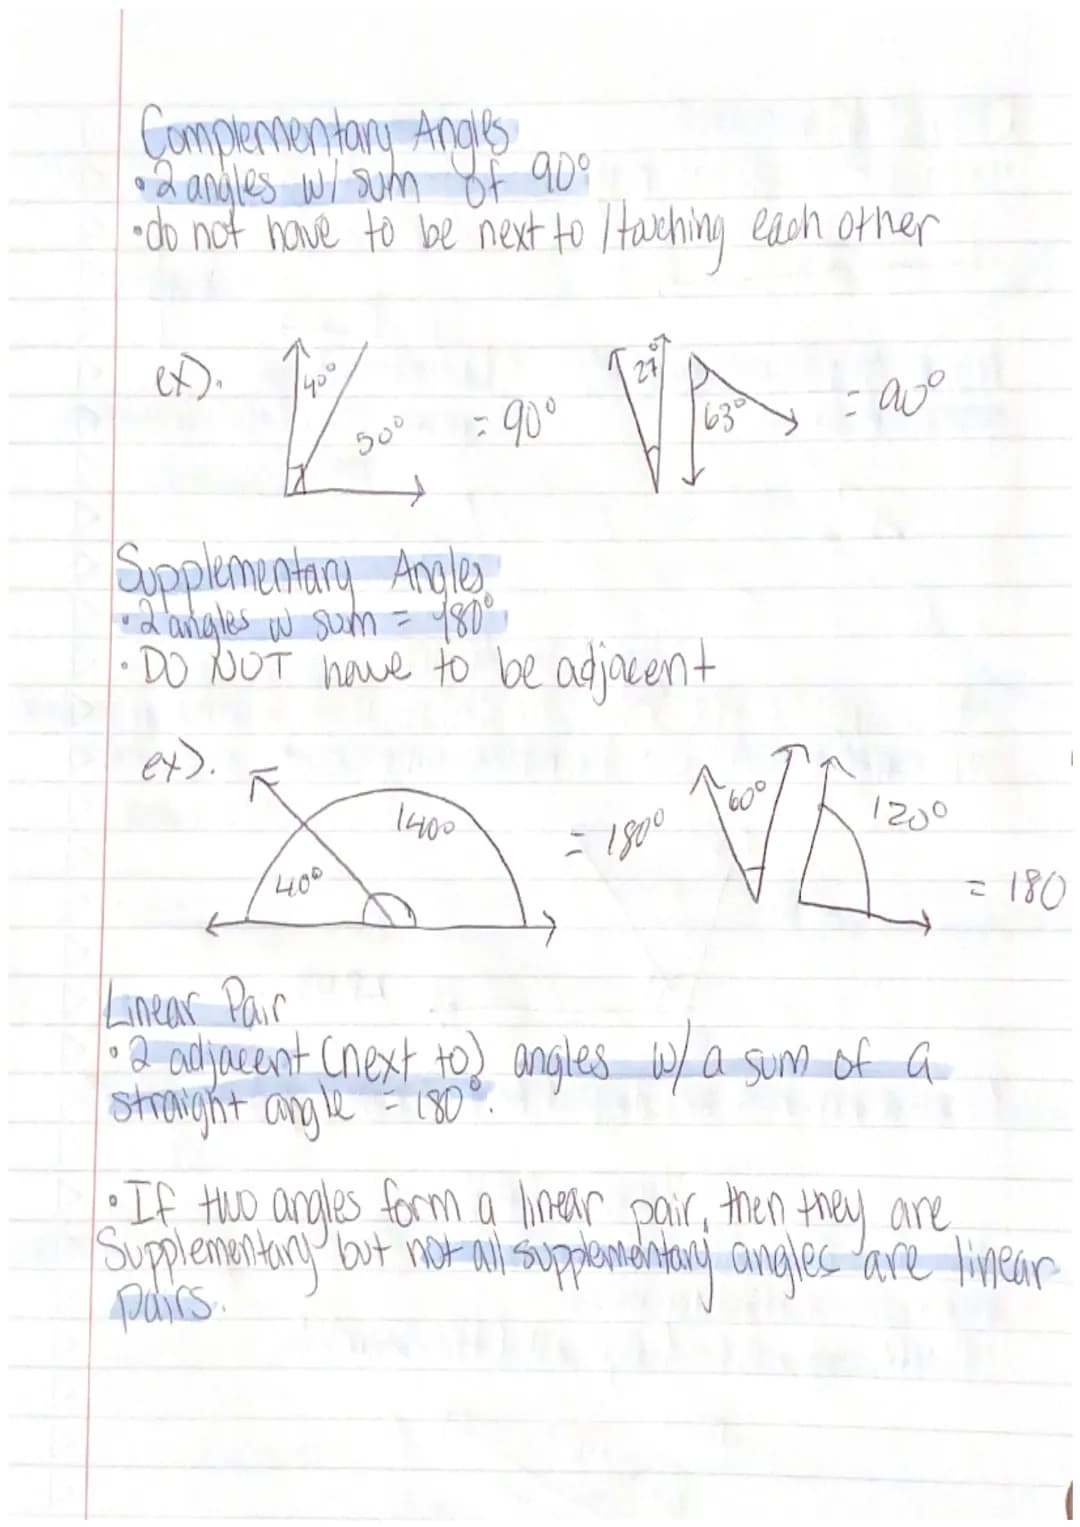 Complementary Angles
• 2 angles w/ sum of 90°
• do not have to be next to / touching each other
ex). 40° 50° = 90° 27° 63° = 90°
Supplementary Angles
• 2 angles w sum = 180°
• DO NOT have to be adjacent
ex). 40° 140° = 180° 60° 120° = 180
Linear Pair
• 2 adjacent (next to) angles w/ a sum of a
straight angle = 180°.
• If two angles form a linear pair, then they are
Supplementary but not all supplementary angles are linear
pairs.